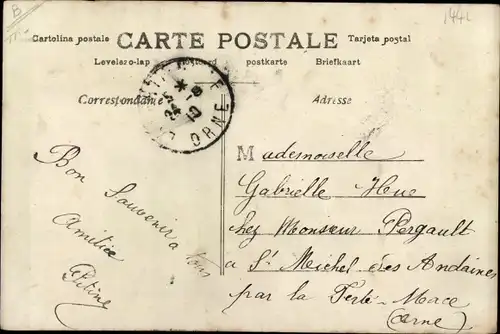 B
1442
Cartolina postale CARTE POSTALE Tarjeta postal
Levelezo-lap Postcard postkarte Briefkaart
Correspondance
Adresse
ORNE
Bon Souvenir a tous
Amitiée
Mademoiselle
Gabrielle Hue
chez Monsieur Pergault
a St Michel des Andaines
par la Ferte-Mace
(Orne)